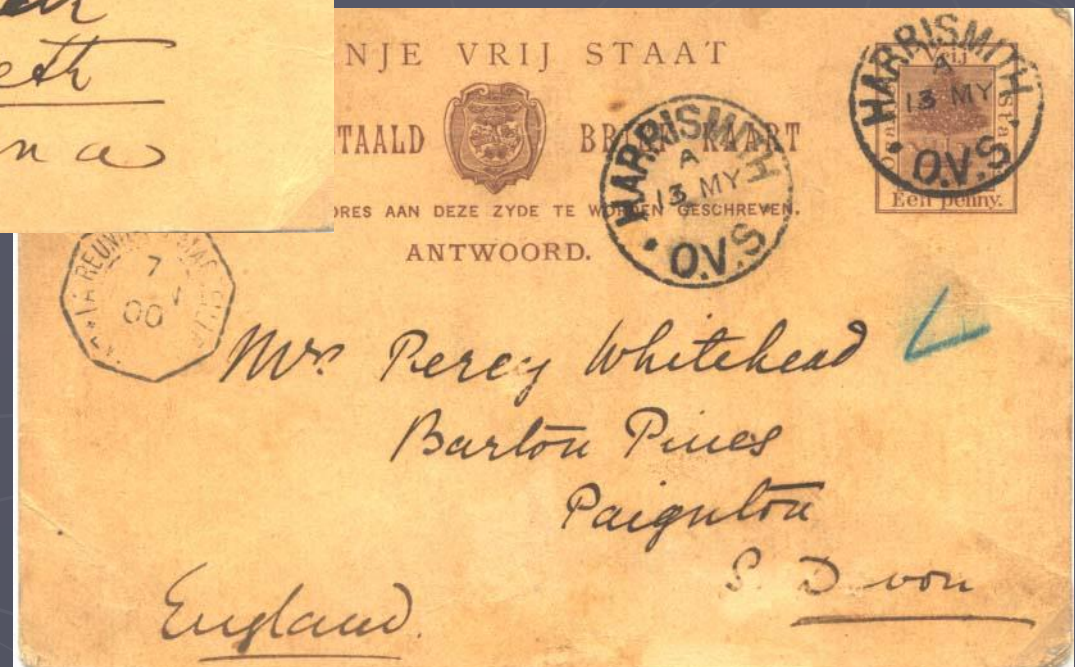 eth
na
NJE VRIJ STAAT
TAALD BRIEFKAART
DRES AAN DEZE ZYDE TE WORDEN GESCHREVEN.
ANTWOORD.
HARRISMITH
A
13 MY
O.V.S
Vrij
HARRISMITH
A
13 MY
O.V.S.
Een penny.
7
00
Mrs Percy Whitehead
Barton Pines
Paignton
S. Devon
England.